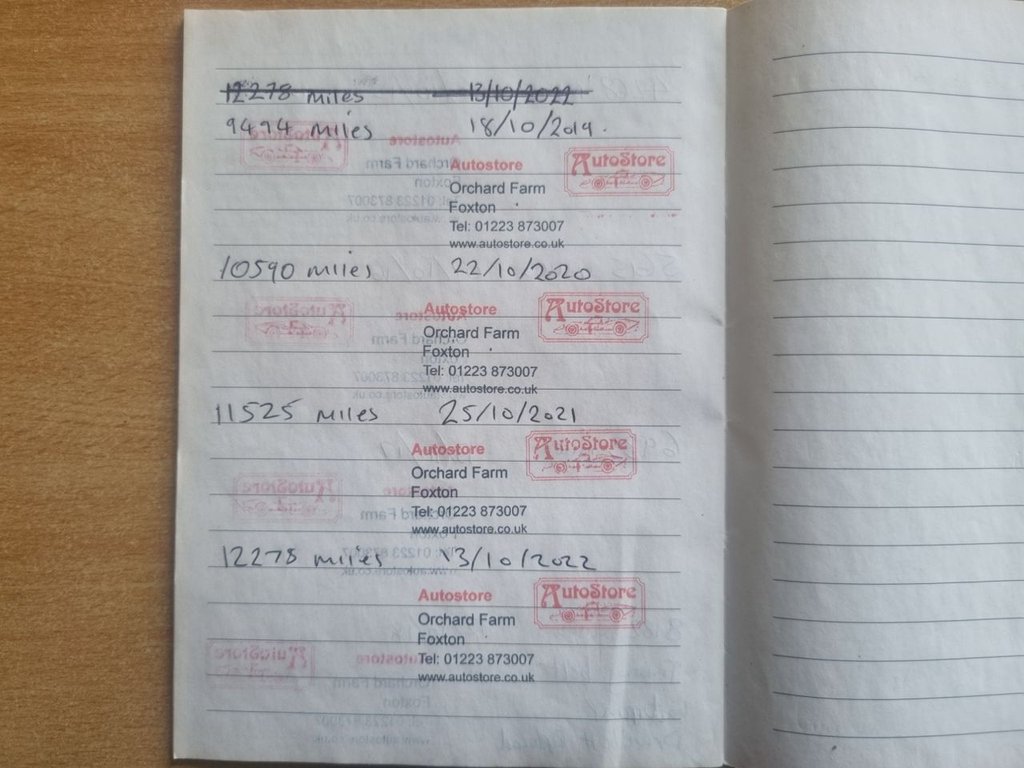 12278 miles 13/10/2022
9494 miles 18/10/2019.
Autostore AutoStore
Orchard Farm
Foxton
Tel: 01223 873007
www.autostore.co.uk
10590 miles 22/10/2020
Autostore AutoStore
Orchard Farm
Foxton
Tel: 01223 873007
www.autostore.co.uk
11525 miles 25/10/2021
Autostore AutoStore
Orchard Farm
Foxton
Tel: 01223 873007
www.autostore.co.uk
12278 miles 13/10/2022
Autostore AutoStore
Orchard Farm
Foxton
Tel: 01223 873007
www.autostore.co.uk